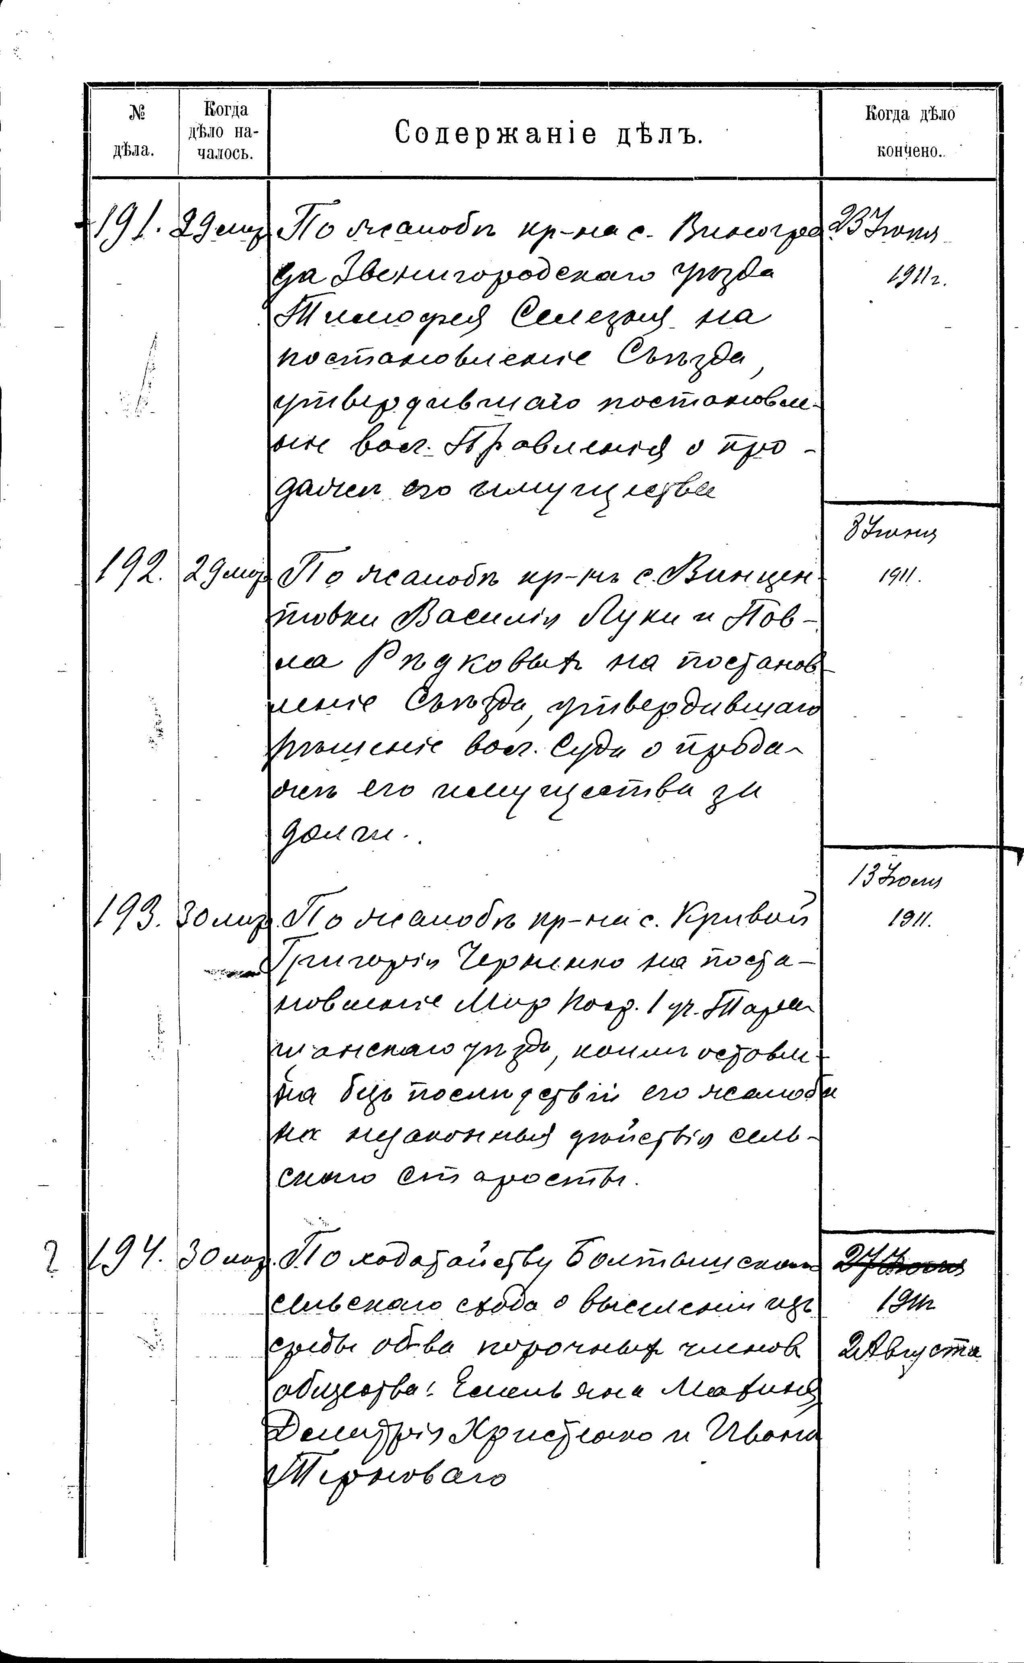 № дѣла.
Когда дѣло на-
чалось.
Содержаніе дѣлъ.
Когда дѣло кончено.
191. 29 мар. По жалобѣ кр-на с. Виногра 23 Іюня
да Звенигородскаго уѣзда 1911 г.
Тимофея Селезня на
постановленіе Съѣзда,
утвердившаго постановле-
ніе вол. Правленія о про-
дажѣ его имущества
8 Іюня
192. 29 мар. По жалобѣ кр-нъ с. Винцен- 1911.
товки Василія Луки и Пав-
ла Рѣдковыхъ на постанов-
леніе Съѣзда, утвердившаго
рѣшеніе вол. Суда о прода-
жѣ его имущества за
долги.
13 Іюля
193. 30 мар. По жалобѣ кр-на с. Кривой 1911.
Григорія Черненко на поста-
новленіе Мир. Поср. 1 уч. Тара-
щанскаго уѣзда, коимъ оставле-
на безъ послѣдствій его жалоба
на незаконныя дѣйствія сель-
скаго старосты.
? 194. 30 мар. По ходатайству Болтышскаго 27 Іюля
сельскаго схода о выселеніи изъ 1911
среды об-ва порочныхъ членов 2 Августа
общества: Емельяна Махиня,
Димитрія Христенко и Ивана
Терноваго